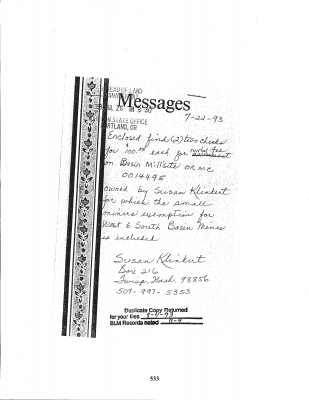 BUREAU OF LAND
JUL 26 9 30
Messages
7-22-93
STATE OFFICE
PORTLAND, OR
Enclosed find (2) two checks
for $100.00 each for rental fee
on Basin Millsite OR MC
0014495
owned by Susan Klinkert
for which the small
miners exemption for
West & South Basin Mines
is included
Susan Klinkert
Box 216
Twisp, Wash. 98856
509-997-5353
Duplicate Copy Returned
for your files 8-4-93
BLM Records noted
533